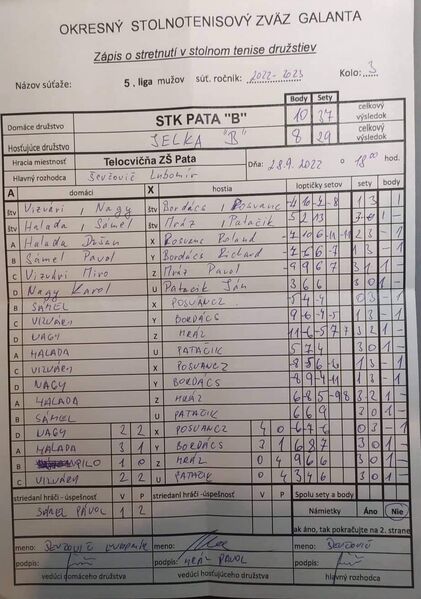 OKRESNÝ STOLNOTENISOVÝ ZVÄZ GALANTA
Zápis o stretnutí v stolnom tenise družstiev
Názov súťaže: 5. liga mužov súť. ročník: 2022-2023 Kolo: 3
Body Sety
Domáce družstvo STK PATA "B" 10 37 celkový výsledok
Hosťujúce družstvo JELKA "B" 8 29 celkový výsledok
Hracia miestnosť Telocvičňa ZŠ Pata Dňa: 28.9.2022 o 18 00 hod.
Hlavný rozhodca Ševčovič Ľubomír
A domáci X hostia loptičky setov sety body
štv Vizvári, Nagy štv Bordács, Posvanc 1 3 - 1
štv Halada, Sámel štv Mráz, Patačik 5 2 13 1 -
A Halada Dušan X Posvanc Roland 1 3 - 1
B Sámel Pavol Y Bordács Richard 1 3 - 1
C Vizvári Miro Z Mráz Pavol -9 9 6 7 3 1 1 -
D Nagy Karol U Patačik Ján 3 6 6 3 0 1 -
B SÁMEL X POSVANCZ -5 -4 -4 0 3 - 1
C VIZVÁRY Y BORDÁCS 1 3 - 1
D NAGY Z MRÁZ 11 -6 -5 7 7 3 2 1 -
A HALADA U PATAČIK 5 7 4 3 0 1 -
C VIZVÁRY X POSVANCZ -8 5 -6 -6 1 3 - 1
D NAGY Y BORDÁCS 1 3 - 1
A HALADA Z MRÁZ 6 -8 5 -9 8 3 2 1 -
B SÁMEL U PATAČIK 6 6 9 3 0 1 -
D NAGY 2 2 X POSVANCZ 4 0 -6 -7 -6 0 3 - 1
A HALADA 3 1 Y BORDÁCS 3 1 6 8 7 3 0 1 -
B PILO 1 0 Z MRÁZ 0 4 9 6 6 3 0 1 -
C VIZVÁRY 2 2 U PATAČIK 0 4 3 4 6 3 0 1 -
striedaní hráči -úspešnosť V P striedaní hráči -úspešnosť V P Spolu sety a body
SÁMEL PAVOL 1 2 Námietky Áno Nie
ak áno, tak pokračujte na 2. strane
meno: ŠEVČOVIČ meno: meno: ŠEVČOVIČ
podpis: podpis: MRÁZ PAVOL podpis:
vedúci domáceho družstva vedúci hosťujúceho družstva hlavný rozhodca